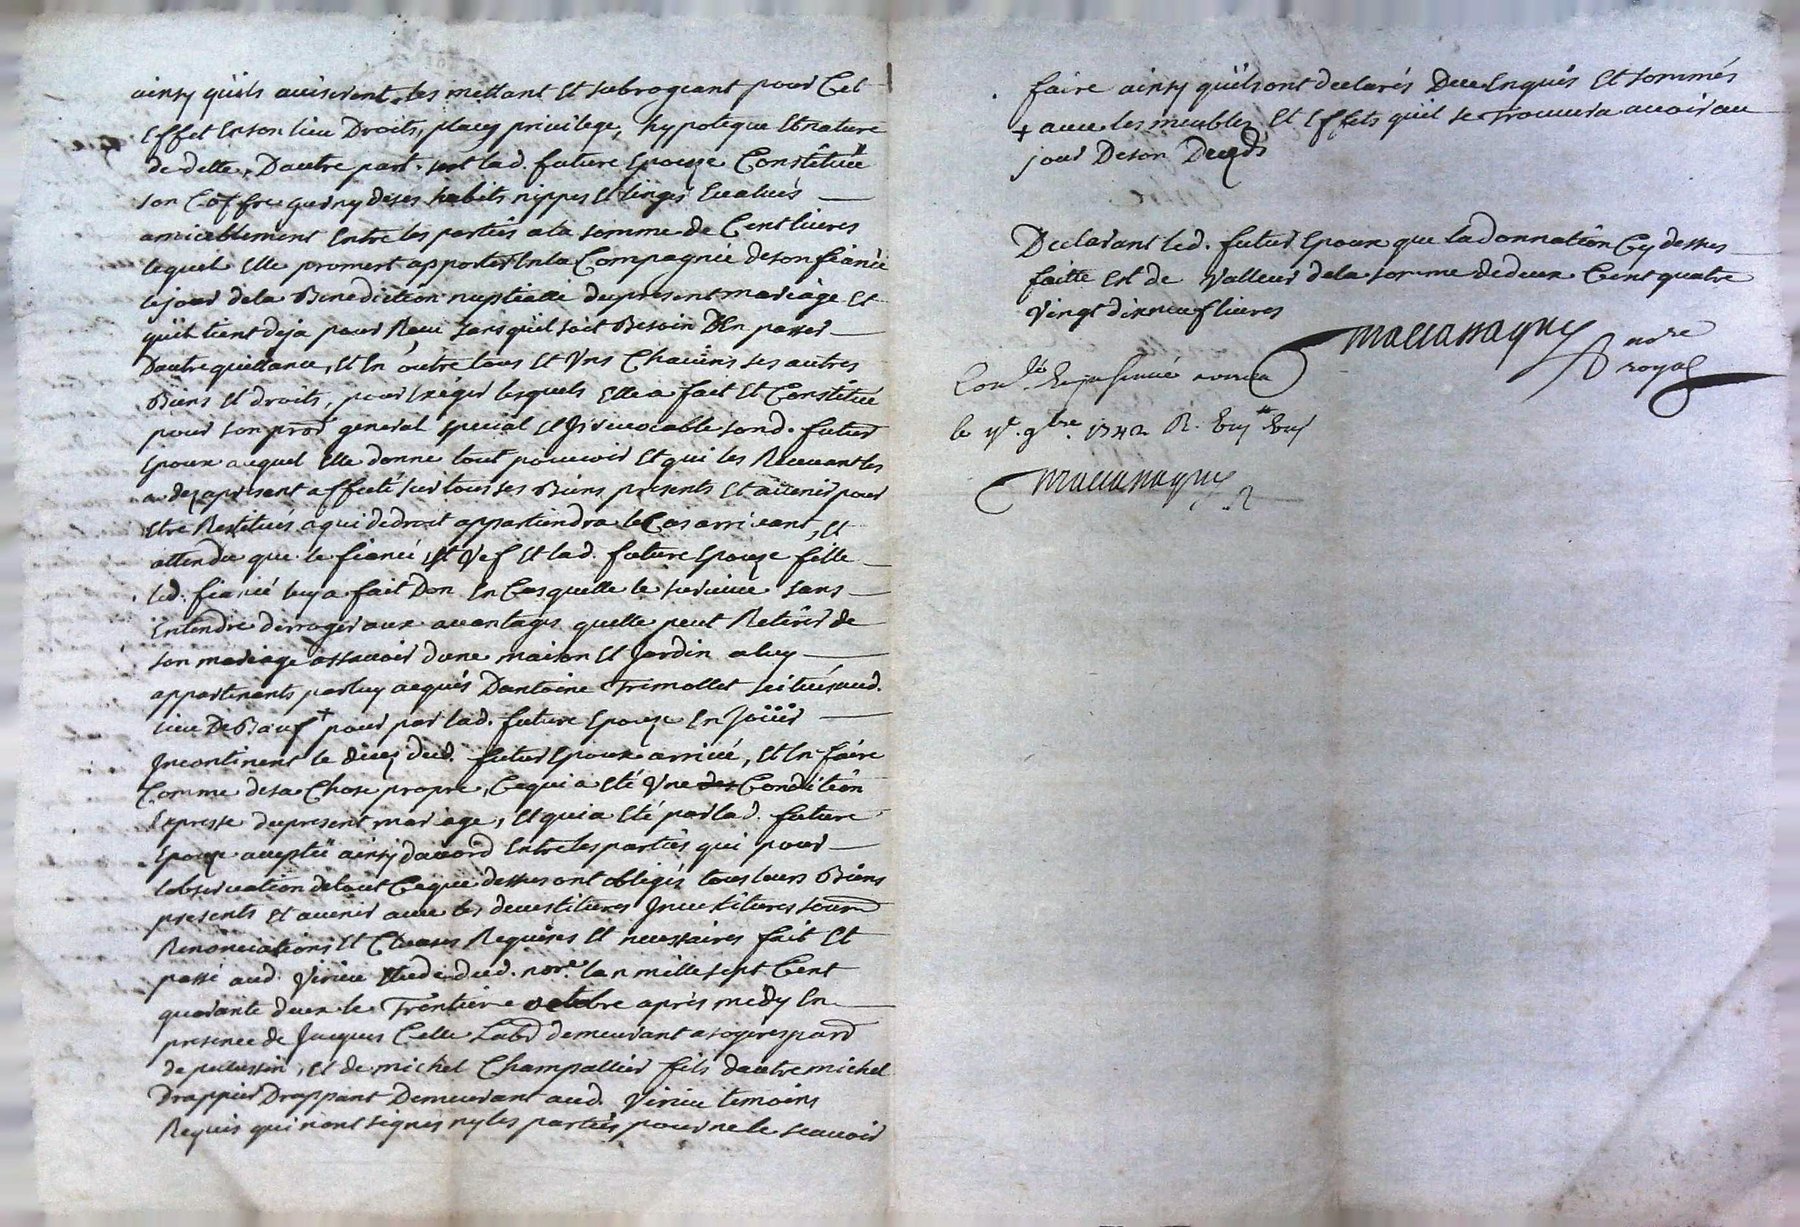 ainsy quils aviseront, les mettant et subrogeant pour cet
effet en son lieu Droits, places privilege, hypoteque et nature
de dette, Dautre part sest lad. future Epouze Constituée
son Coffre garny de ses habits nippes et linges Evalués
amicablement Entre les parties a la somme de Cent livres
lequel Elle promet apporter En la Compagnie de son fiancé
le jour de la Benediction nuptialle du present mariage Et
quil tient deja pour Reçu sans quil soit Besoin D'En passer
Dautre quittance, Et En outre tous et Uns Chacuns ses autres
Biens Et droits, pour Exiger lesquels Elle a fait Et Constitué
pour son proc.r general special et Irrevocable sond. futur
Epoux auquel Elle donne tout pouvoir Et qui les Recevant les
a dez apresent affecté sur tous ses Biens presents Et avenir pour
Etre Restitués a qui de droit appartiendra le Cas arrivant, Et
attendu que le fiancé est Vef et lad. future Epouze fille
led. fiancé luy a fait Don En Cas quelle le survive sans
Entendre derroger aux avantages quelle peut Retirer de
son mariage assavoir dune maison Et Jardin a luy
appartenants par luy acquis Dantoine Tremollet scitués aud.
lieu De Bœuf + pour par lad. future Epouze En Joüir
Incontinent le décez dud. futur Epoux arrivé, Et En faire
Comme de sa Chose propre, Ce qui a Eté Une des Condition
Expresse du present mariage, Et qui a Eté par lad. future
Epouze accepté ainsy daccord Entre les parties qui pour
lobservation de tout Ceque dessus ont obligés tous leurs Biens
presents Et avenir avec les devestitures Investitures
Renonciations Et Clauses Requises Et necessaires fait Et
passé aud. Virieu Etude dud. no.re lan mille sept Cent
quarante deux le Trentieme octobre après midy En
presence de Jacques Celle Lab.r demeurant a
de pelussin, et de michel Champallier fils dautre michel
Drappier Drappant Demeurant aud. Virieu temoins
Requis qui n'ont signés ny les parties pour ne le scavoir
faire ainsy quils ont declarés Deuement Enquis Et sommés
+ avec les meubles Et Effets quil se trouvera avoir au
jour De son Decéds
Declarant led. futur Epoux que la donnation Cy dessus
faitte Est de Valleur de la somme de deux Cent quatre
Vingt dix neuf livres
Maccassagny no.re
royal
Con.lé
le 9.bre 1742 R.
Maccassagny